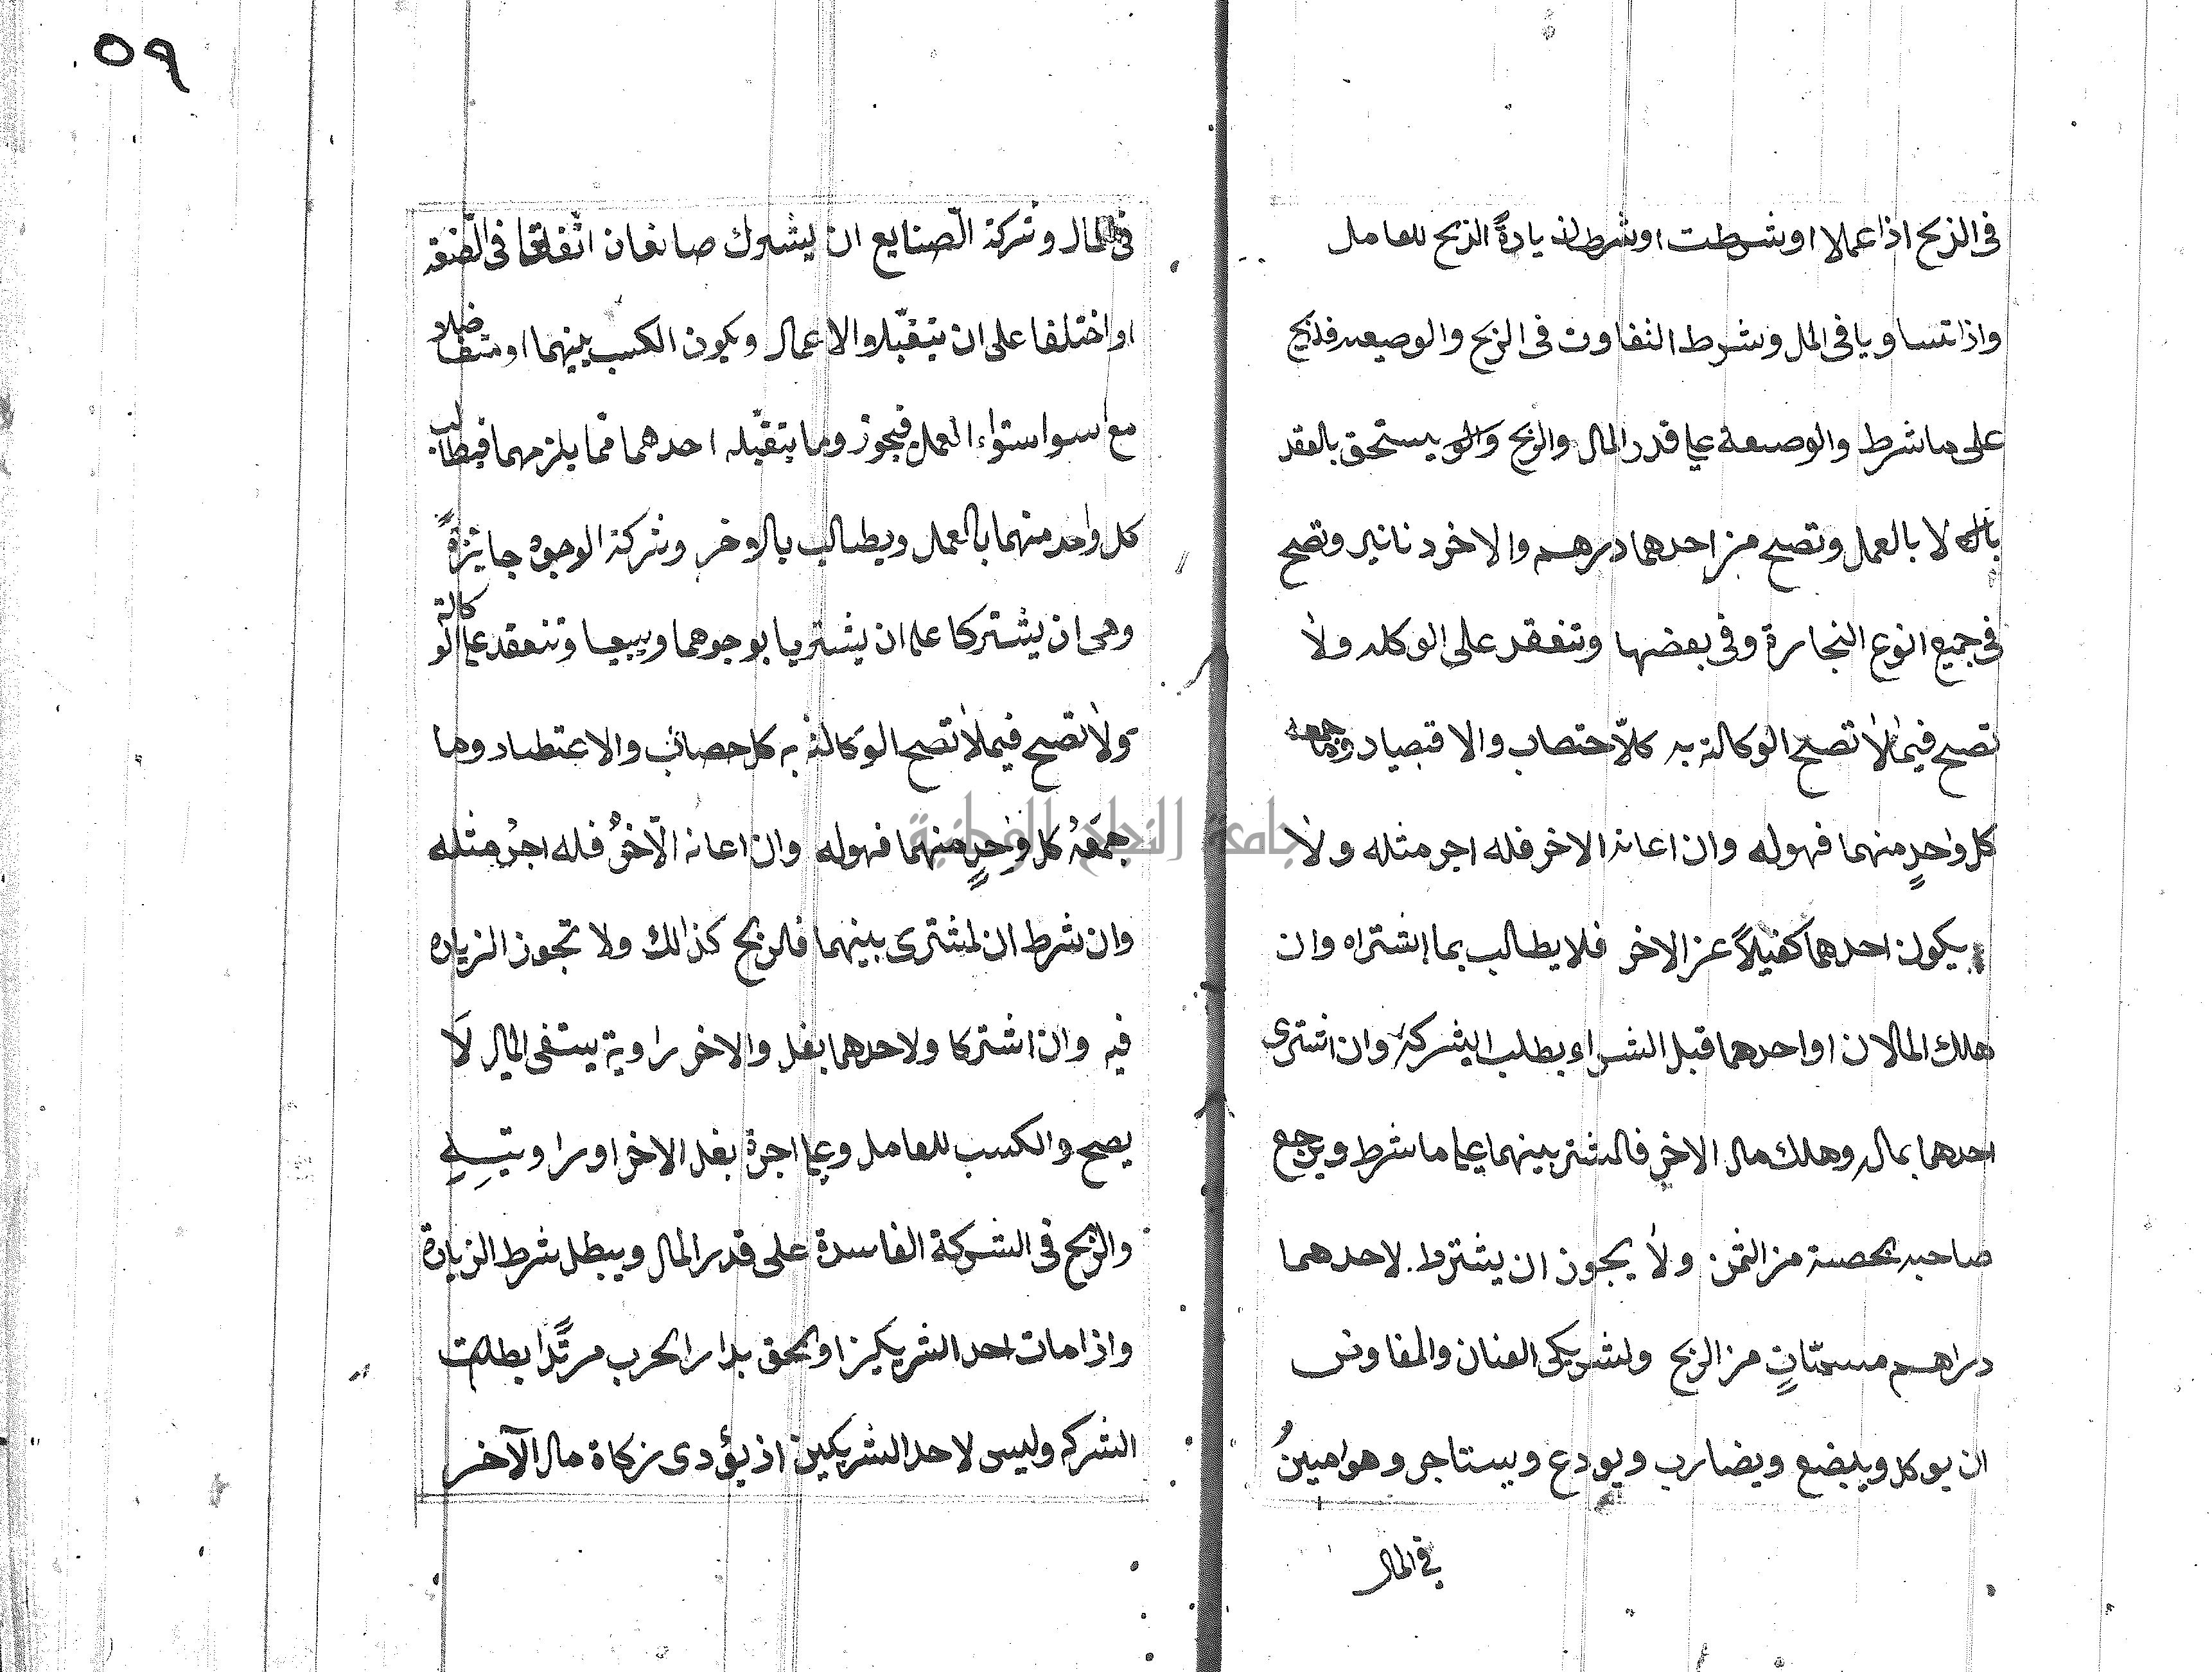 فى الربح اذا عملا او شرطت او شرطا زيادة الربح للعامل
واذا تساويا فى المال وشرط التفاوت فى الربح والوصيعه فلربح
على ما شرط والوصعة على قدر المال والربح يستحق بالعقد
لا بالعمل وتصح من احدهما درهم والاخر دنانير وتصح
فى جميع انوع التجارة وفى بعضها وتنعقد على الوكله ولا
تصح فيما لا تصح الوكالة به كلاحتصاب والاقتصياد وما جمعه
كل واحدٍ منهما فهوله وان اعانه الاخر فله اجر مثله ولا
يكون احدهما كفيلاً عن الاخر فلا يطالب بما اشتراه وان
هلك المالان او احدهما قبل الشراء بطلب الشركة وان اشترى
احدهما بماله وهلك مال الاخر فالمشتر بينهما على ما شرط ويرجع
صاحبه بحصة من الثمن ولا يجوز ان يشترط لاحدهما
دراهم مسمتاتٍ من الربح ولشريكى العنان والمفاوض
ان يوكل ويبضع ويضارب ويودع ويستاجر وهو امين
فى المال
٥٩
فى المال وشركة الصنايع ان يشترك صانعان اتفاقا فى الصنعه
او اختلفا على ان يتقبلو الاعمال ويكون الكسب بينهما او متفاضلا
مع استواء العمل فيجوز وما يتقبله احدهما مما يلزمهما فيطالب
كل واحد منهما بالعمل ويطالب بالاخر وشركة الوجوه جايزةً
وهى ان يشتركا على ان يشتريا بوجوههما ويبيعا وتنعقد على الوكالة
ولا تصح فيما لا تصح الوكالة به كلحصاب والاعتطياد وما
جمعهُ كل واحدٍ منهما فهوله وان اعانه الآخرُ فله اجرُ مثله
وان شرط ان لمشترى بينهما فالربح كذالك ولا تجوز الزياده
فيه وان اشتركا ولاحدهما بغل والاخر راوية يستقى المال لا
يصح والكسب للعامل وعلى اجرة بغل الاخر او
والربح فى الشركة الفاسدة على قدر المال ويبطل شرط الزيادة
واذا مات احد الشريكين او لحق بدار الحرب مرتدًا بطلت
الشركه وليس لاحد الشريكين اذ يؤدى زكاة مال الآخر
جامعة النجاح الوطنية